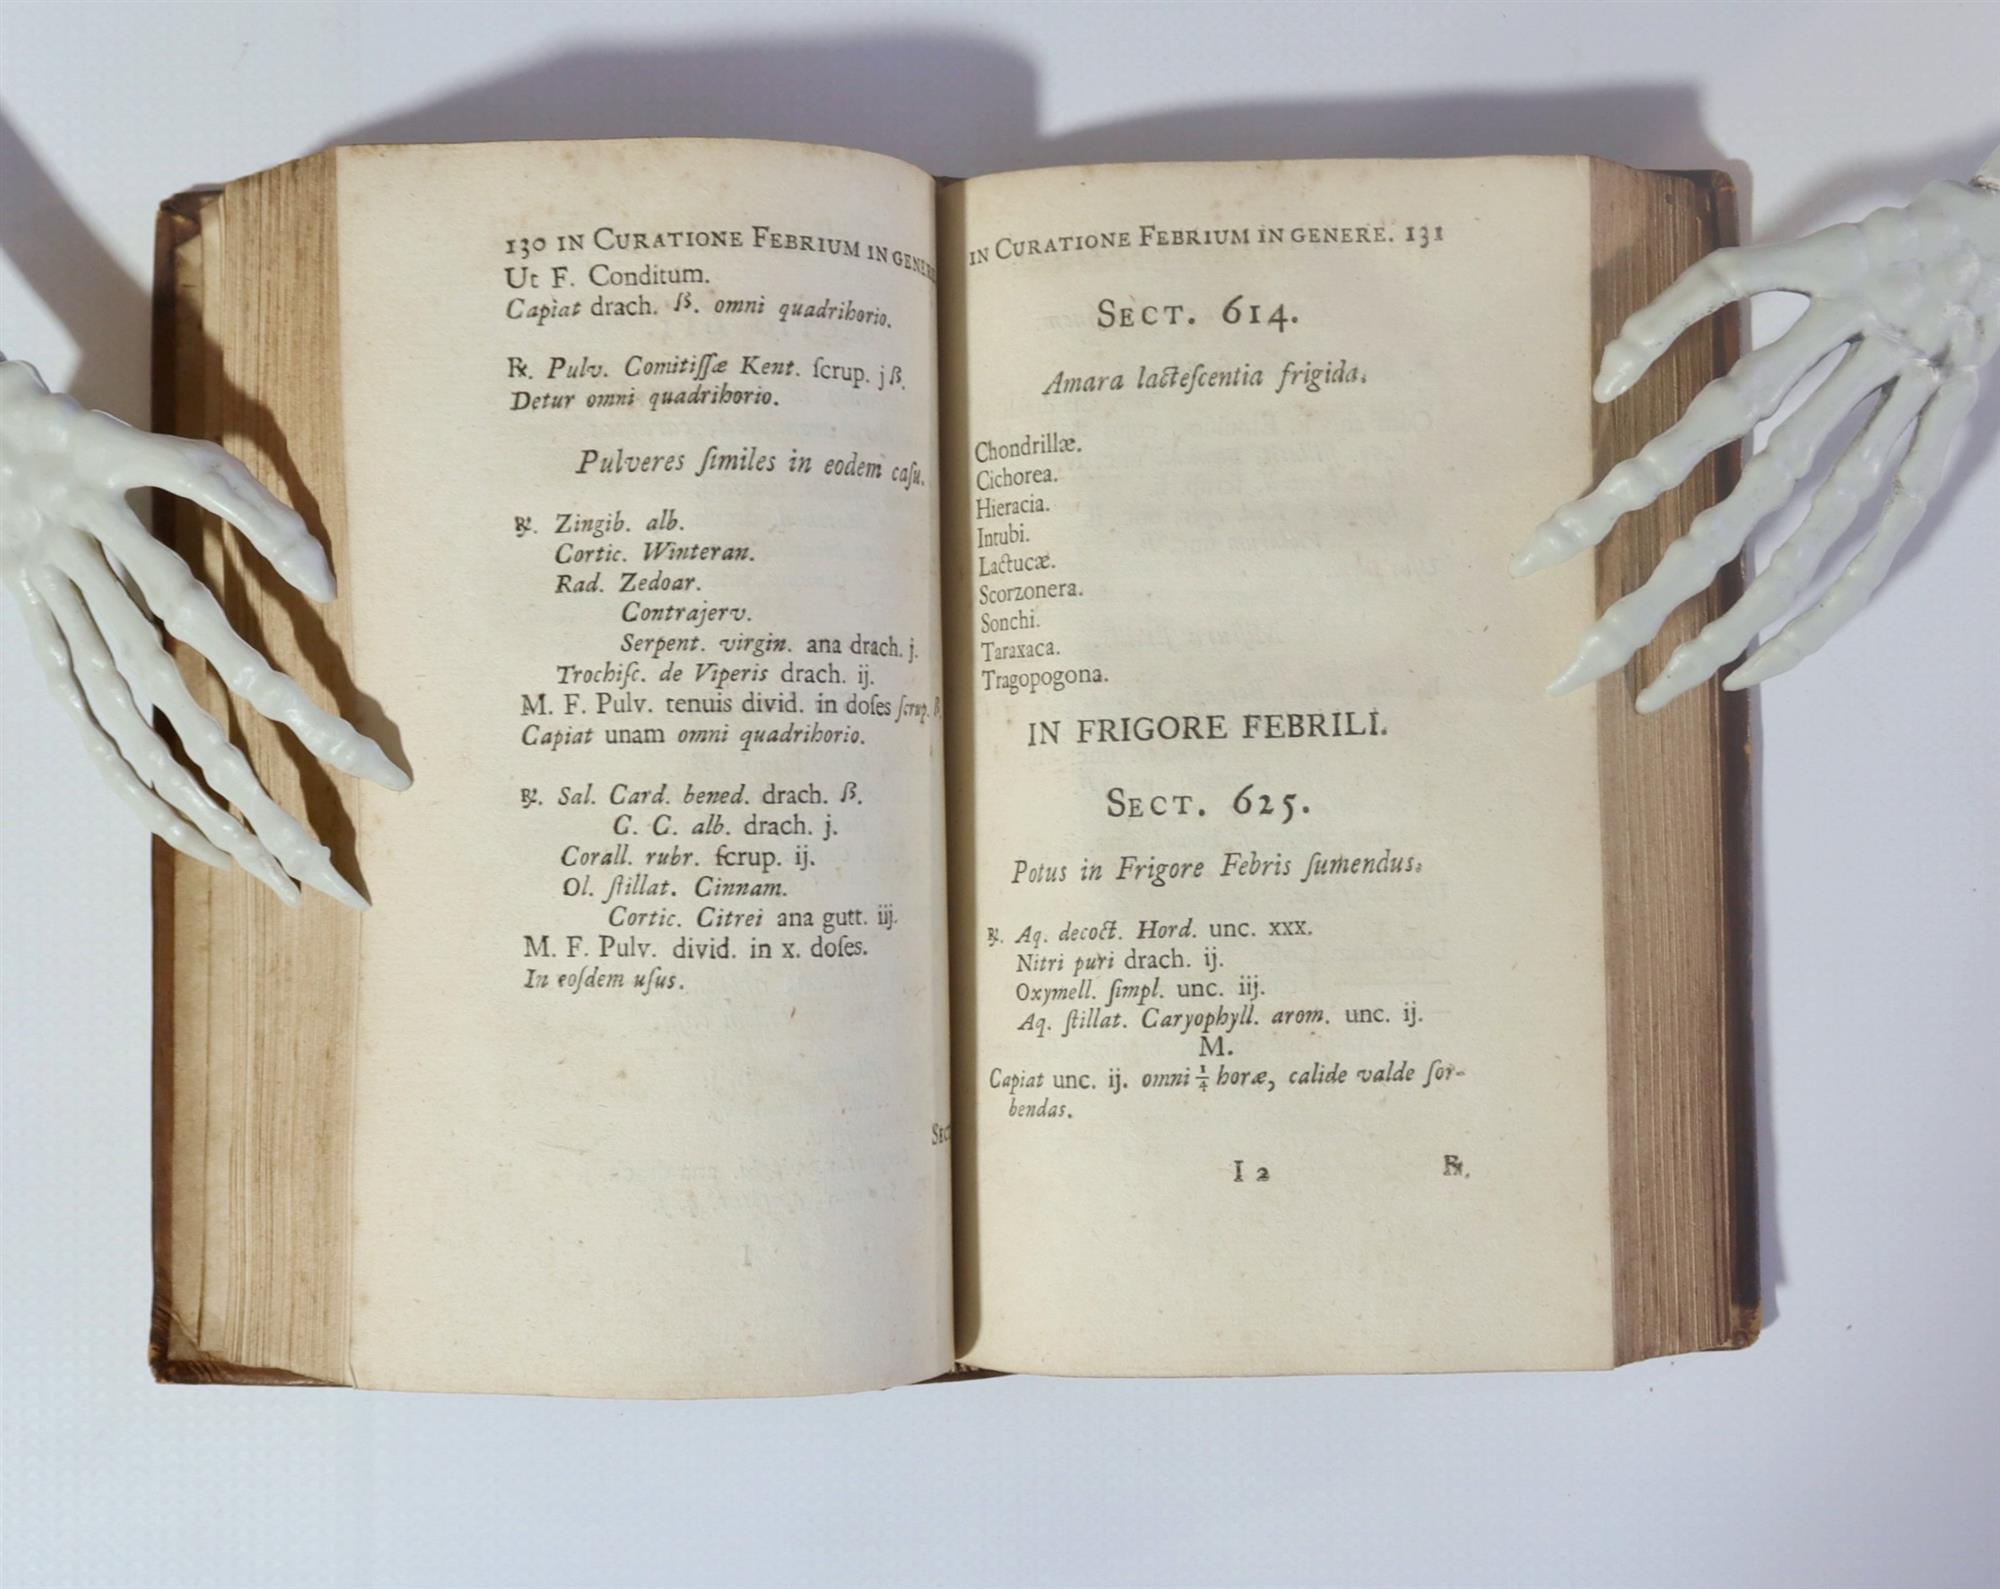 130 IN CURATIONE FEBRIUM IN GENERE
Ut F. Conditum.
Capiat drach. ß. omni quadrihorio.
℞. Pulv. Comitiſſæ Kent. ſcrup. j ß.
Detur omni quadrihorio.
Pulveres ſimiles in eodem caſu.
℞. Zingib. alb.
Cortic. Winteran.
Rad. Zedoar.
Contrajerv.
Serpent. virgin. ana drach. j.
Trochiſc. de Viperis drach. ij.
M. F. Pulv. tenuis divid. in doſes ſcrup. ß.
Capiat unam omni quadrihorio.
℞. Sal. Card. bened. drach. ß.
C. C. alb. drach. j.
Corall. rubr. ſcrup. ij.
Ol. ſtillat. Cinnam.
Cortic. Citrei ana gutt. iij.
M. F. Pulv. divid. in x. doſes.
In eoſdem uſus.
SECT
IN CURATIONE FEBRIUM IN GENERE. 131
SECT. 614.
Amara lacteſcentia frigida.
Chondrillæ.
Cichorea.
Hieracia.
Intubi.
Lactucæ.
Scorzonera.
Sonchi.
Taraxaca.
Tragopogona.
IN FRIGORE FEBRILI.
SECT. 625.
Potus in Frigore Febris ſumendus.
℞. Aq. decoct. Hord. unc. xxx.
Nitri puri drach. ij.
Oxymell. ſimpl. unc. iij.
Aq. ſtillat. Caryophyll. arom. unc. ij.
M.
Capiat unc. ij. omni ¼ horæ, calide valde ſor-
bendas.
I 2 ℞.